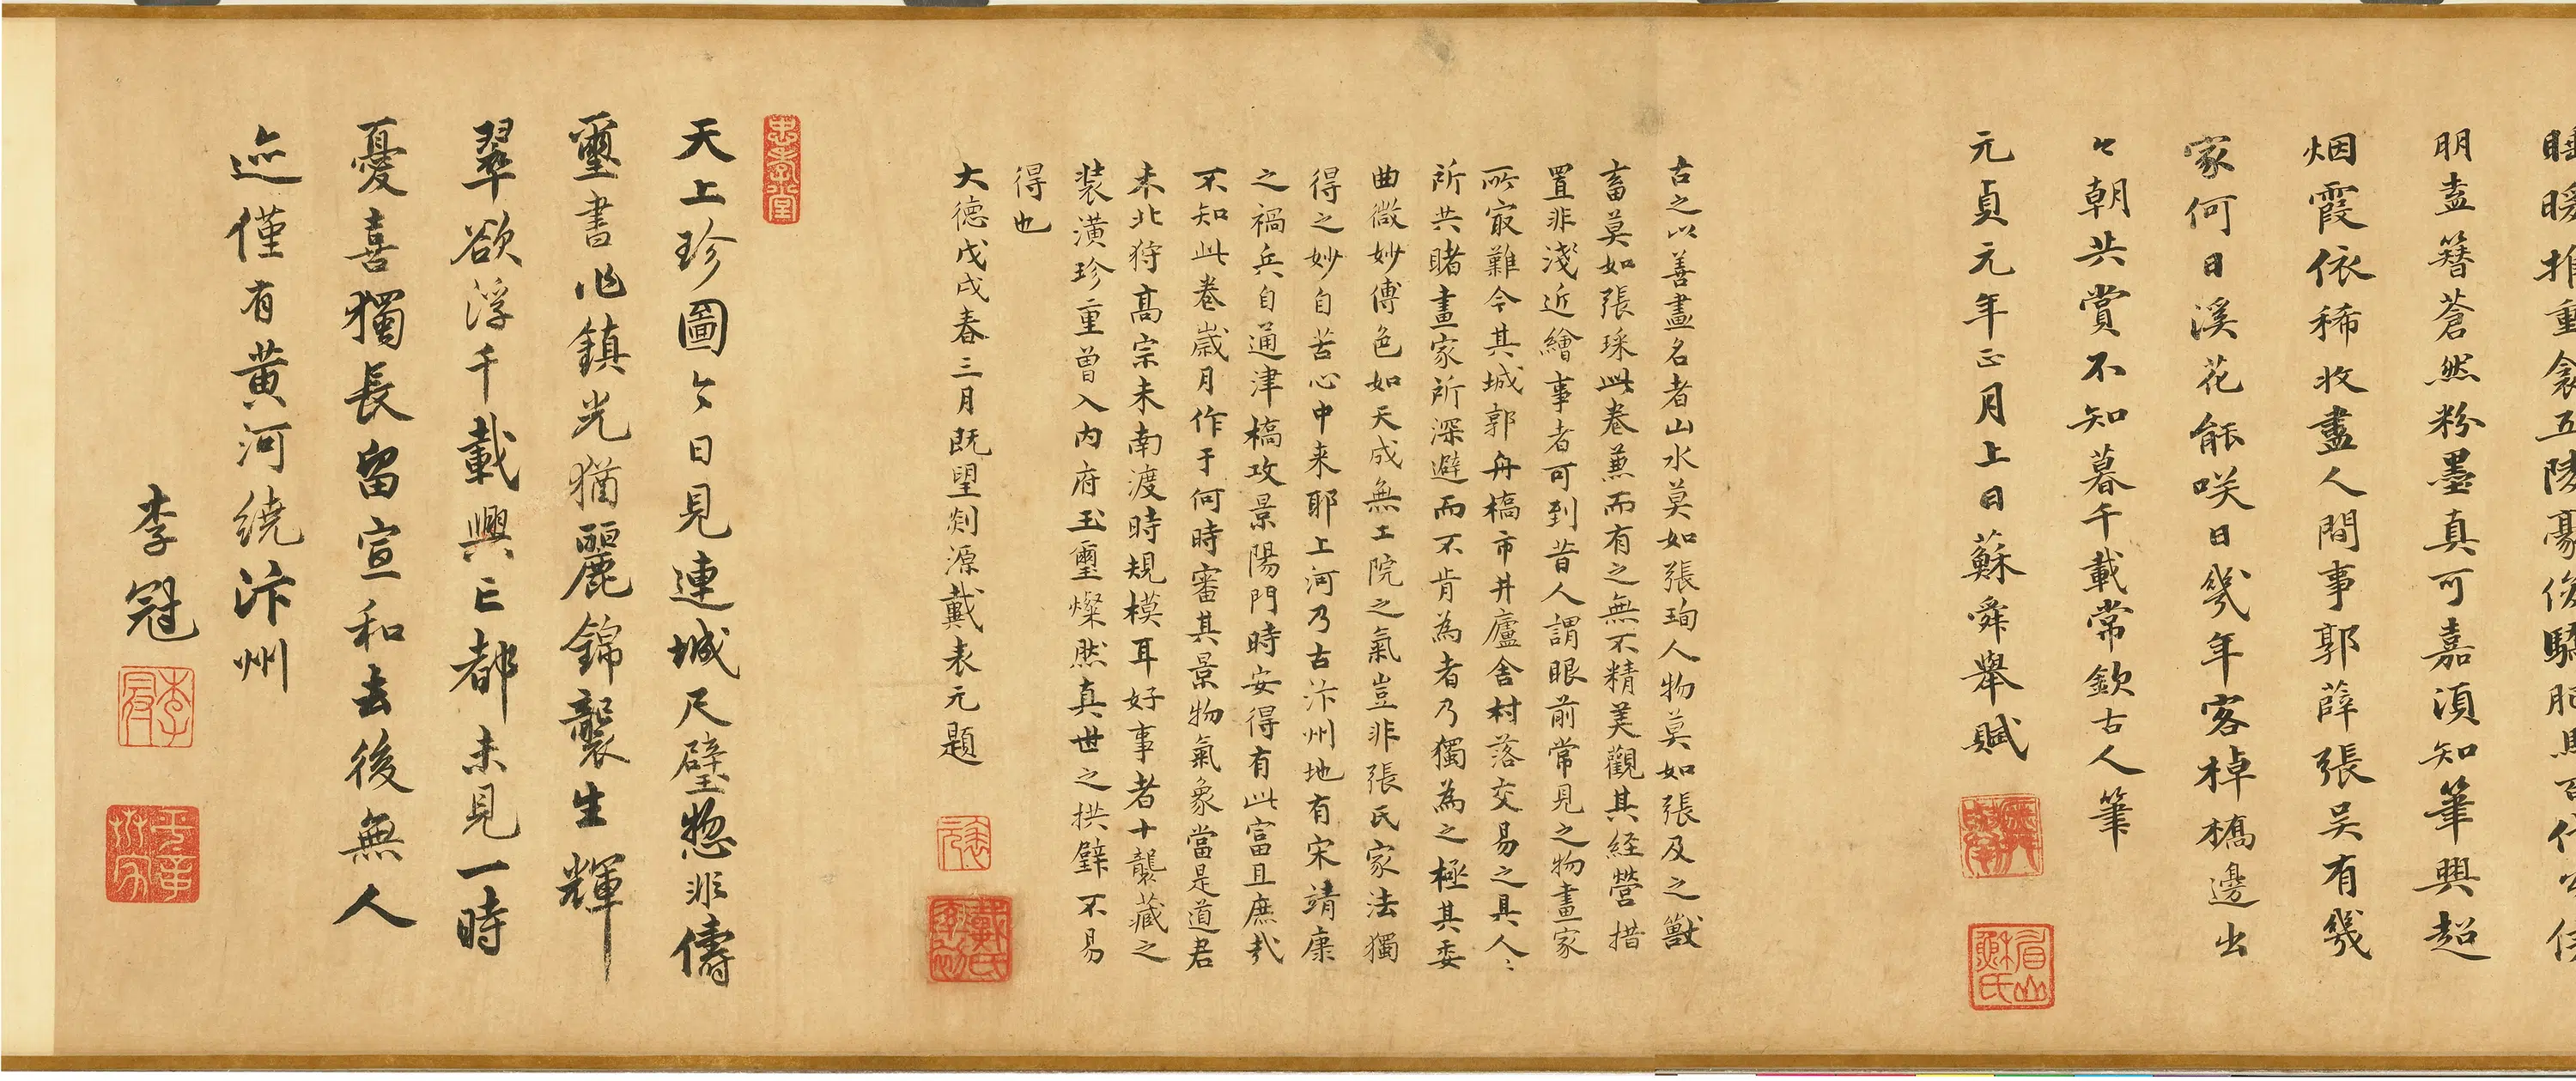 明盡簪蒼然粉墨真可嘉須知筆興超
烟霞依稀收盡人間事郭薛張吳有幾
家何日溪花能咲日幾年客棹橋邊出
々朝共賞不知暮千載常欽古人筆
元貞元年正月上日蘇舜舉賦
眉山蘇氏
古之以善畫名者山水莫如張珣人物莫如張及之獸
畜莫如張琛此卷蒹而有之無不精美觀其経營措
置非淺近繪事者可到昔人謂眼前常見之物畫家
所㝡難今其城郭舟橋市井廬舍村落交易之具人〻
所共睹畫家所深避而不肯為者乃獨為之極其委
曲微妙傅色如天成無工院之氣豈非張氏家法獨
得之妙自苦心中来耶上河乃古汴州地有宋靖康
之禍兵自通津橋攻景陽門時安得有此富且庶㦲
不知此卷歲月作于何時審其景物氣象當是道君
未北狩高宗未南渡時規模耳好事者十襲藏之
装潢珍重曾入内府玉璽燦然真世之拱璧不易
得也
大德戊戌春三月既望剡源戴表元題
忠孝堂
天上珍圖今日見連城尺璧惣非儔
璽書永鎮光猶麗錦襲生輝
翠欲浮千載興亡都未見一時
憂喜獨長留宣和去後無人
迹僅有黄河繞汴州
李冠
李冠